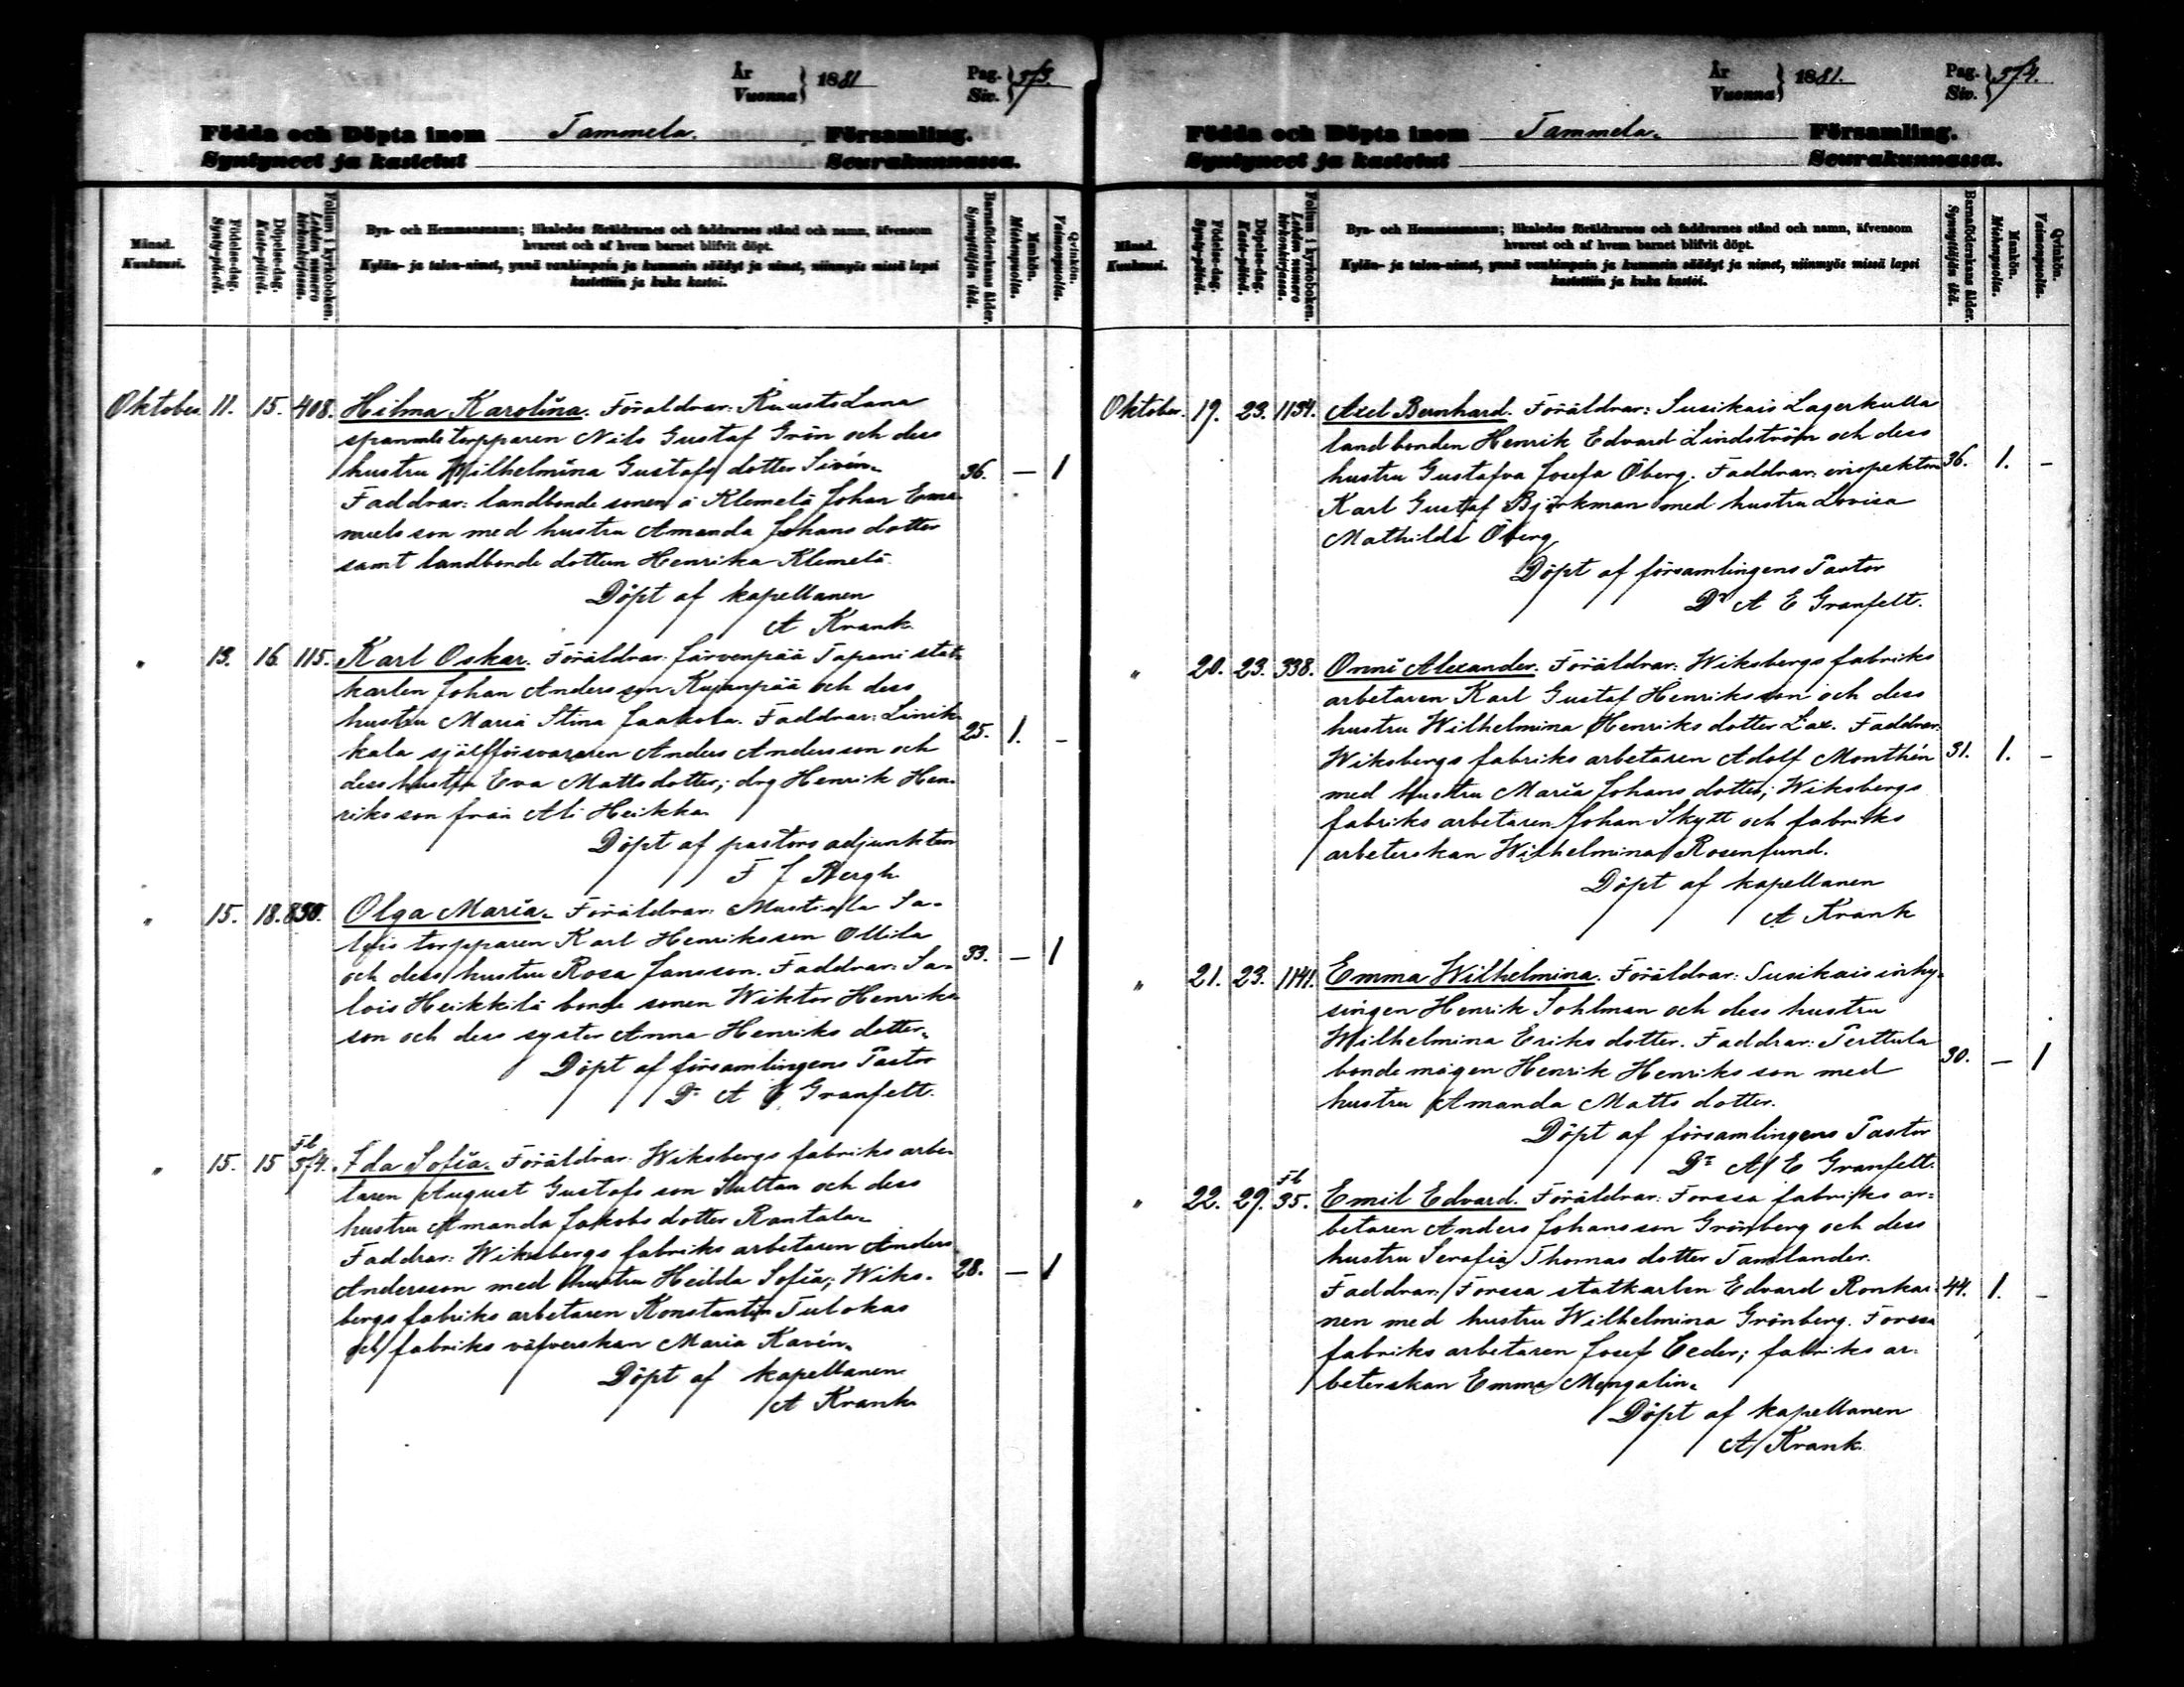 År
Vuonna } 1881
Pag.
Siv. } 573.
Födda och Döpta inom Tammela. Församling.
Syntyneet ja kastetut Seurakunnassa.
Månad.
Kuukausi.
Födelse-dag.
Synty-päivä.
Döpelse-dag.
Kaste-päivä.
Folium i kyrkoboken.
Lehden numero kirkonkirjassa.
Bya- och Hemmansnamn; likaledes föräldrarnes och faddrarnes stånd och namn, äfvensom
hvarest och af hvem barnet blifvit döpt.
Kylän- ja talon-nimet, ynnä vanhimpain ja kummein säädyt ja nimet, niinmyös missä lapsi
kastettiin ja kuka kastoi.
Barnaföderskans ålder.
Synnyttäjän ikä.
Mankön.
Miehenpuolia.
Qvinkön.
Vaimonpuolia.
Oktober. 11. 15. 408. Hilma Karolina. Föräldrar: Kuusto Lana
torpparen Nils Gustaf Grön och dess
hustru Wilhelmina Gustafs dotter Sivén. 36. — 1
Faddrar: landbonde sonen å Klemelä Johan Ema-
nuels son med hustru Amanda Johans dotter
samt landbonde dottern Henrika Klemelä.
Döpt af kapellanen
A Krank.
" 13. 16. 115. Karl Oskar. Föräldrar: Järvenpää Tapani stat-
karlen Johan Anders son Kujanpää och dess
hustru Maria Stina Jaakola. Faddrar: Linik-
kala själfförsvararen Anders Andersson och 25. 1. –
dess hustru Eva Matts dotter; drg Henrik Hen-
riks son från Ali Heikka.
Döpt af pastors adjunkten
F J Bergh
" 15. 18. 850. Olga Maria. Föräldrar: Mustiala Sa-
lois torpparen Karl Henriksson Ollila
och dess hustru Rosa Jansson. Faddrar: Sa- 33. — 1
lois Heikkilä bonde sonen Wiktor Henriks-
son och dess syster Anna Henriks dotter.
Döpt af församlingens Pastor
Dr A E Granfelt.
" 15. 15 Fb 574. Ida Sofia. Föräldrar: Wiksbergs fabriks arbe-
taren August Gustafs son Huttan och dess
hustru Amanda Jakobs dotter Rantala.
Faddrar: Wiksbergs fabriks arbetaren Anders
Andersson med hustru Heilda Sofia; Wiks- 28. — 1
bergs fabriks arbetaren Konstantin Tulokas
och fabriks väfverskan Maria Kavén.
Döpt af kapellanen
A Krank
År
Vuonna } 1881.
Pag.
Siv. } 574.
Födda och Döpta inom Tammela. Församling.
Syntyneet ja kastetut Seurakunnassa.
Månad.
Kuukausi.
Födelse-dag.
Synty-päivä.
Döpelse-dag.
Kaste-päivä.
Folium i kyrkoboken.
Lehden numero kirkonkirjassa.
Bya- och Hemmansnamn; likaledes föräldrarnes och faddrarnes stånd och namn, äfvensom
hvarest och af hvem barnet blifvit döpt.
Kylän- ja talon-nimet, ynnä vanhimpain ja kummein säädyt ja nimet, niinmyös missä lapsi
kastettiin ja kuka kastoi.
Barnaföderskans ålder.
Synnyttäjän ikä.
Mankön.
Miehenpuolia.
Qvinkön.
Vaimonpuolia.
Oktober. 19. 23. 1134. Axel Bernhard. Föräldrar: Susikais Lagerkulla
landbonden Henrik Edvard Lindström och dess
hustru Gustafva Josefa Öberg. Faddrar: inspektorn 36. 1. –
Karl Gustaf Björkman med hustru Lovisa
Mathilda Öberg
Döpt af församlingens Pastor
Dr A E Granfelt.
" 20. 23. 338. Onni Alexander. Föräldrar: Wiksbergs fabriks
arbetaren Karl Gustaf Henriksson och dess
hustru Wilhelmina Henriks dotter Lax. Faddrar:
Wiksbergs fabriks arbetaren Adolf Monthén 31. 1. –
med hustru Maria Johans dotter; Wiksbergs
fabriks arbetaren Johan Skytt och fabriks
arbeterskan Wilhelmina Rosenlund.
Döpt af kapellanen
A Krank
" 21. 23. 1141. Emma Wilhelmina. Föräldrar: Susikais inhy-
singen Henrik Sohlman och dess hustru
Wilhelmina Eriks dotter. Faddrar: Perttula
bondemågen Henrik Henriks son med 30. — 1
hustru Amanda Matts dotter.
Döpt af församlingens Pastor
Dr A E Granfelt.
" 22. 29. Fb 35. Emil Edvard. Föräldrar: Forssa fabriks ar-
betaren Anders Johansson Grönberg och dess
hustru Serafia Thomas dotter Tamlander.
Faddrar: Forssa statkarlen Edvard Ronkai- 44. 1. –
nen med hustru Wilhelmina Grönberg. Forssa
fabriks arbetaren Josef Ceder; fabriks ar-
beterskan Emma Mengalin.
Döpt af kapellanen
A Krank.